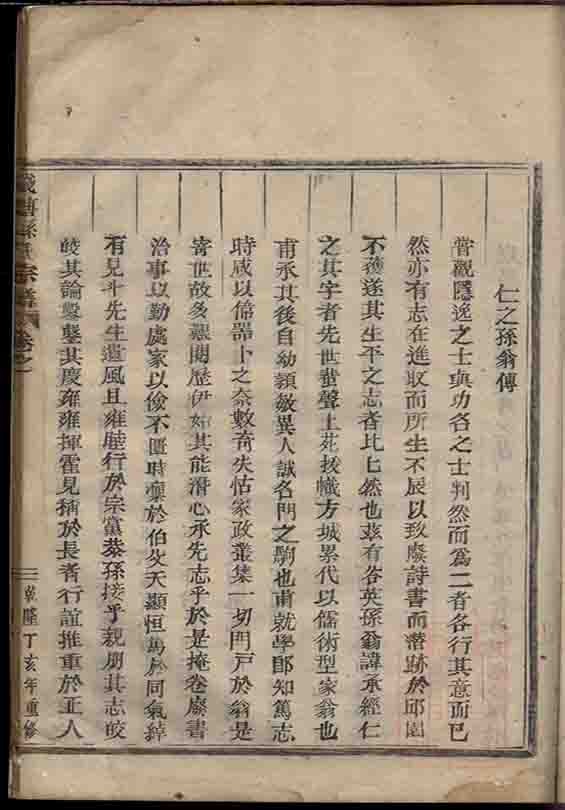 仁之孫翁傳
嘗觀隱逸之士與功名之士判然而爲二者各行其意而已
然亦有志在進取而所生不辰以致廢詩書而潛跡於邱園
不獲遂其生平之志者比比然也茲有谷英孫翁諱承經仁
之其字者先世蜚聲上苑拔幟方城累代以儒術型家翁也
甫承其後自幼穎敏異人誠名門之駒也甫就學即知篤志
時咸以偉器卜之奈數奇失怙家政叢集一切門戶於翁是
寄世故多艱閱歷伊始其能潛心承先志乎於是掩卷廢書
治事以勤處家以儉不匱時凜於伯父天顯恒篤於同氣綽
有見斗先生遺風且雍睦行於宗黨恭孫接乎親朋其志皎
皎其論鑿鑿其慶雍雍揮霍見稱於長者行誼推重於正人
孫氏宗譜 卷之一
乾隆丁亥年重修